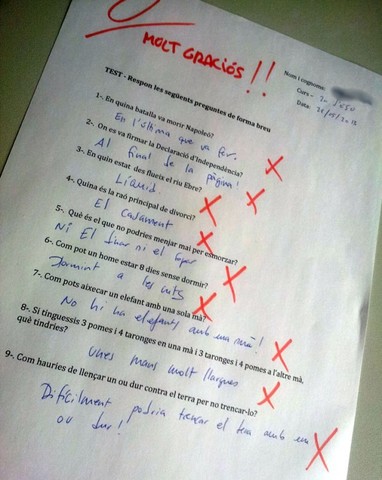 MOLT GRACIÓS!!
Nom i cognoms:
Curs:
Data:
TEST - Respon les següents preguntes de forma breu
1-. En quina batalla va morir Napoleó?
En l'última que va fer.
2-. On es va firmar la Declaració d'Independència?
Al final de la pàgina!
3-. En quin estat des flueix el riu Ebre?
Líquid.
4-. Quina és la raó principal de divorci?
El casament
5-. Què és el que no podries menjar mai per esmorzar?
Ni El dinar ni el sopar
6-. Com pot un home estar 8 dies sense dormir?
Dormint a les nits
7-. Com pots aixecar un elefant amb una sola mà?
No hi ha elefants amb una mà!
8-. Si tinguessis 3 pomes i 4 taronges en una mà i 3 taronges i 4 pomes a l'altre mà,
què tindries?
Unes mans molt llargues
9-. Com hauries de llençar un ou dur contra el terra per no trencar-lo?
Difícilment podria trencar el terra amb un
ou dur!